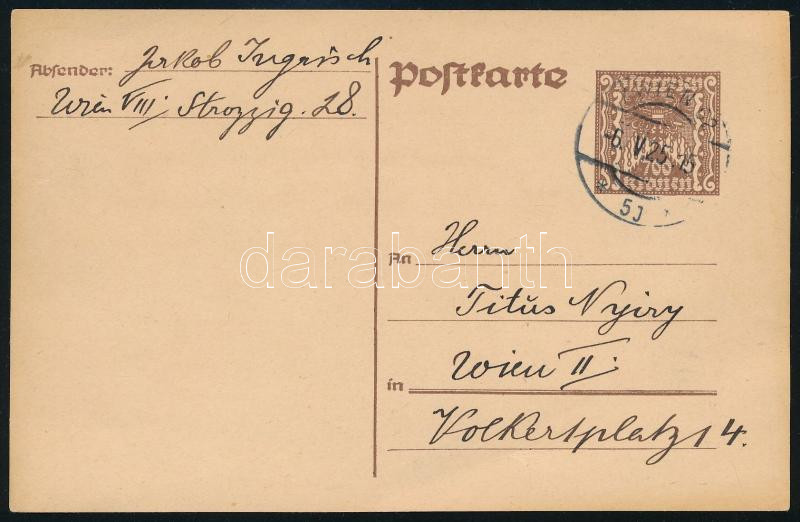 Absender: Jakob Ingrisch
Wien VIII; Strozzig. 28.
Postkarte
WIEN
-6.V.25 15
5J
700
Kronen
An Herrn
Titus Nyiry
in Wien II:
Volkertplatz 14.
darabanth